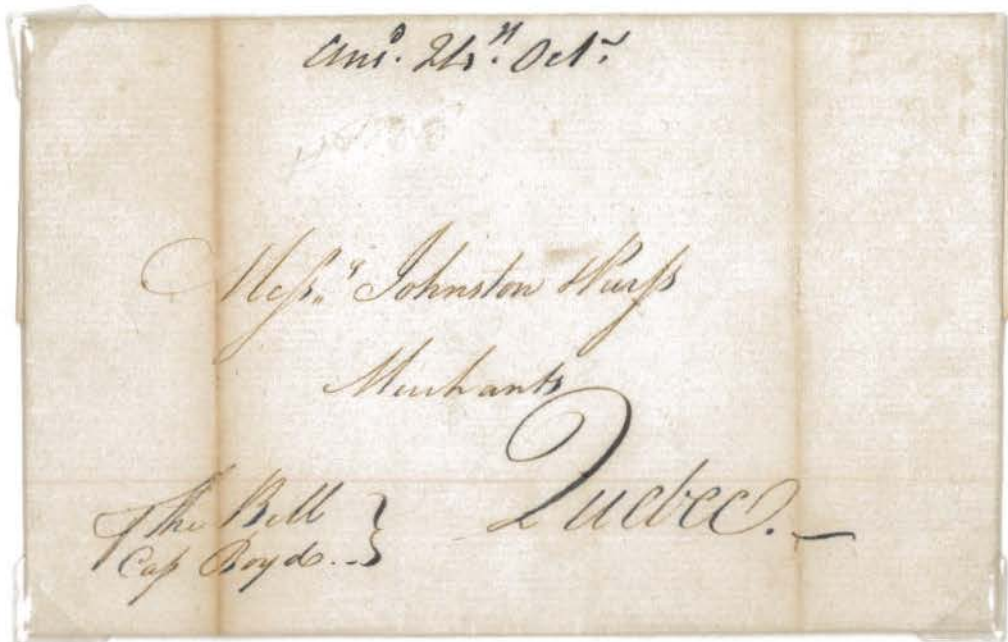 Ansd. 24th. Octr.
Messrs. Johnston & Purss
Merchants
Quebec.
⅌ The Bell
Cap Boyd.